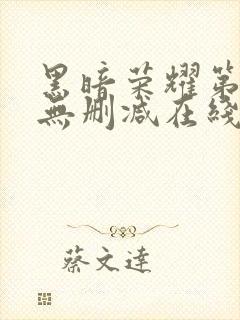 黑暗荣耀第
無删减在綫
蔡文達